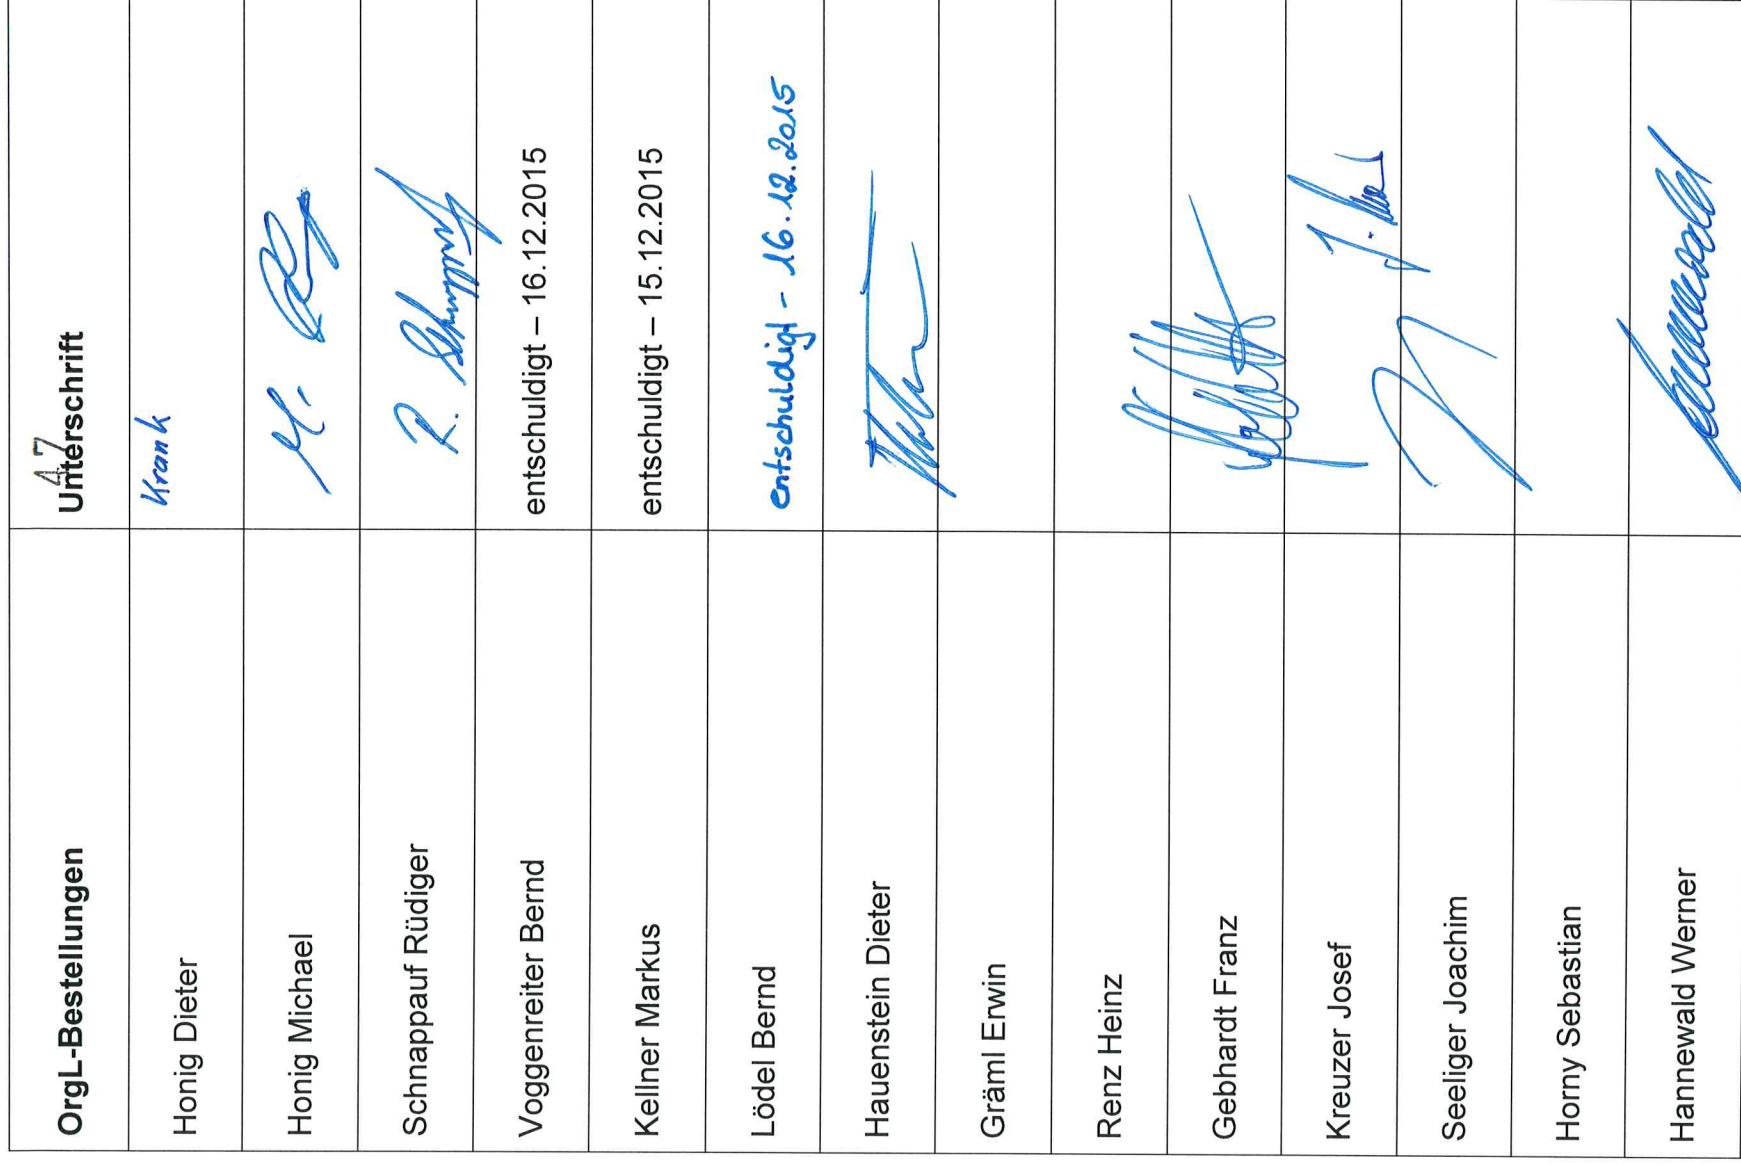 47
OrgL-Bestellungen Unterschrift
Honig Dieter Krank
Honig Michael M.
Schnappauf Rüdiger R. Schnappauf
Voggenreiter Bernd entschuldigt – 16.12.2015
Kellner Markus entschuldigt – 15.12.2015
Lödel Bernd entschuldigt - 16.12.2015
Hauenstein Dieter
Gräml Erwin
Renz Heinz
Gebhardt Franz
Kreuzer Josef
Seeliger Joachim
Horny Sebastian
Hannewald Werner Hannewald